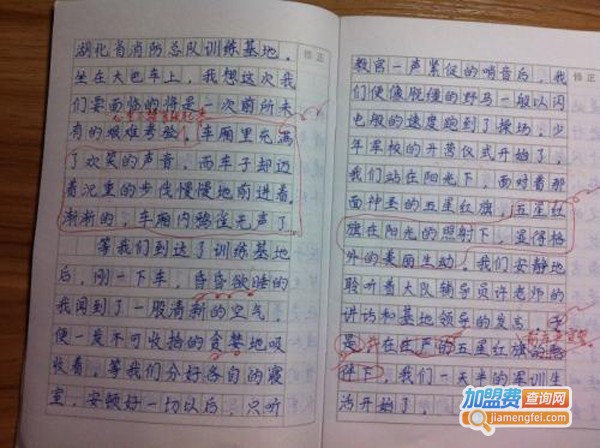 湖北省消防总队训练基地。
坐在大巴车上，我想这次我
们要面临的将是一次前所未
有的艰难考验。车厢里充满
了欢笑的声音，而车子却迈
着沉重的步伐慢慢地前进着。
渐渐的，车厢内鸦雀无声了
等我们到达了训练基地
后，刚一下车，昏昏欲睡的
我闻到了一股清新的空气，
便一发不可收拾的贪婪地吸
收着，等我们分好各自的寝
室，安顿好一切以后，只听
修正
教官一声紧促的哨音后，我
们便像脱缰的野马一般以闪
电般的速度跑到了操场，少
年军校的开营仪式开始了，
我们站在阳光下，面对着那
面神圣的五星红旗，五星红
旗在阳光的照射下，显得格
外的美丽生动。我们安静地
聆听着大队辅导员许老师的
讲话和基地领导的发言，于
是，在庄严的五星红旗的
伴下，我们一天半的军训生
活开始了。
修正
加盟费查询网
www.jiamengfei.com